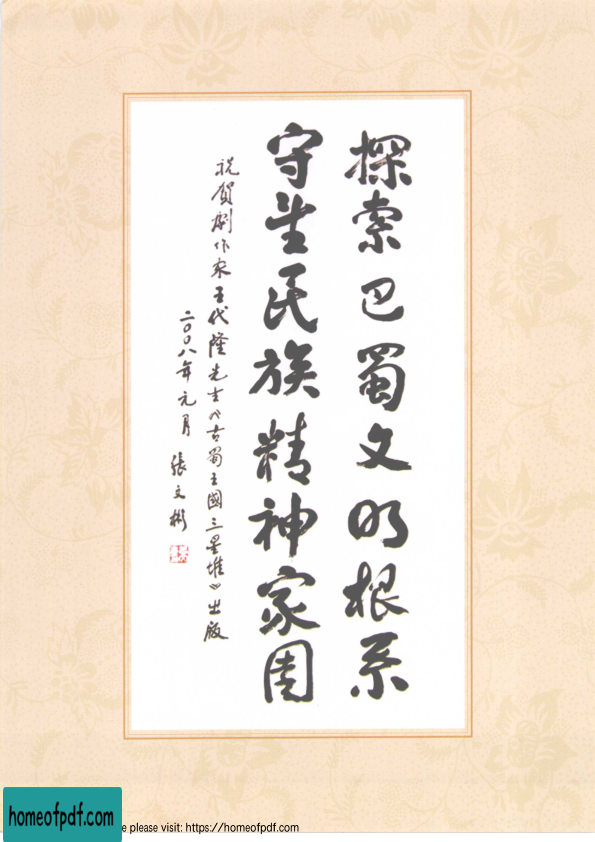 探索巴蜀文明根系
守望民族精神家园
祝贺剧作家王代隆先生《古蜀王國三星堆》出版
二〇〇八年元月 張文彬
homeofpdf.com
e please visit: https://homeofpdf.com